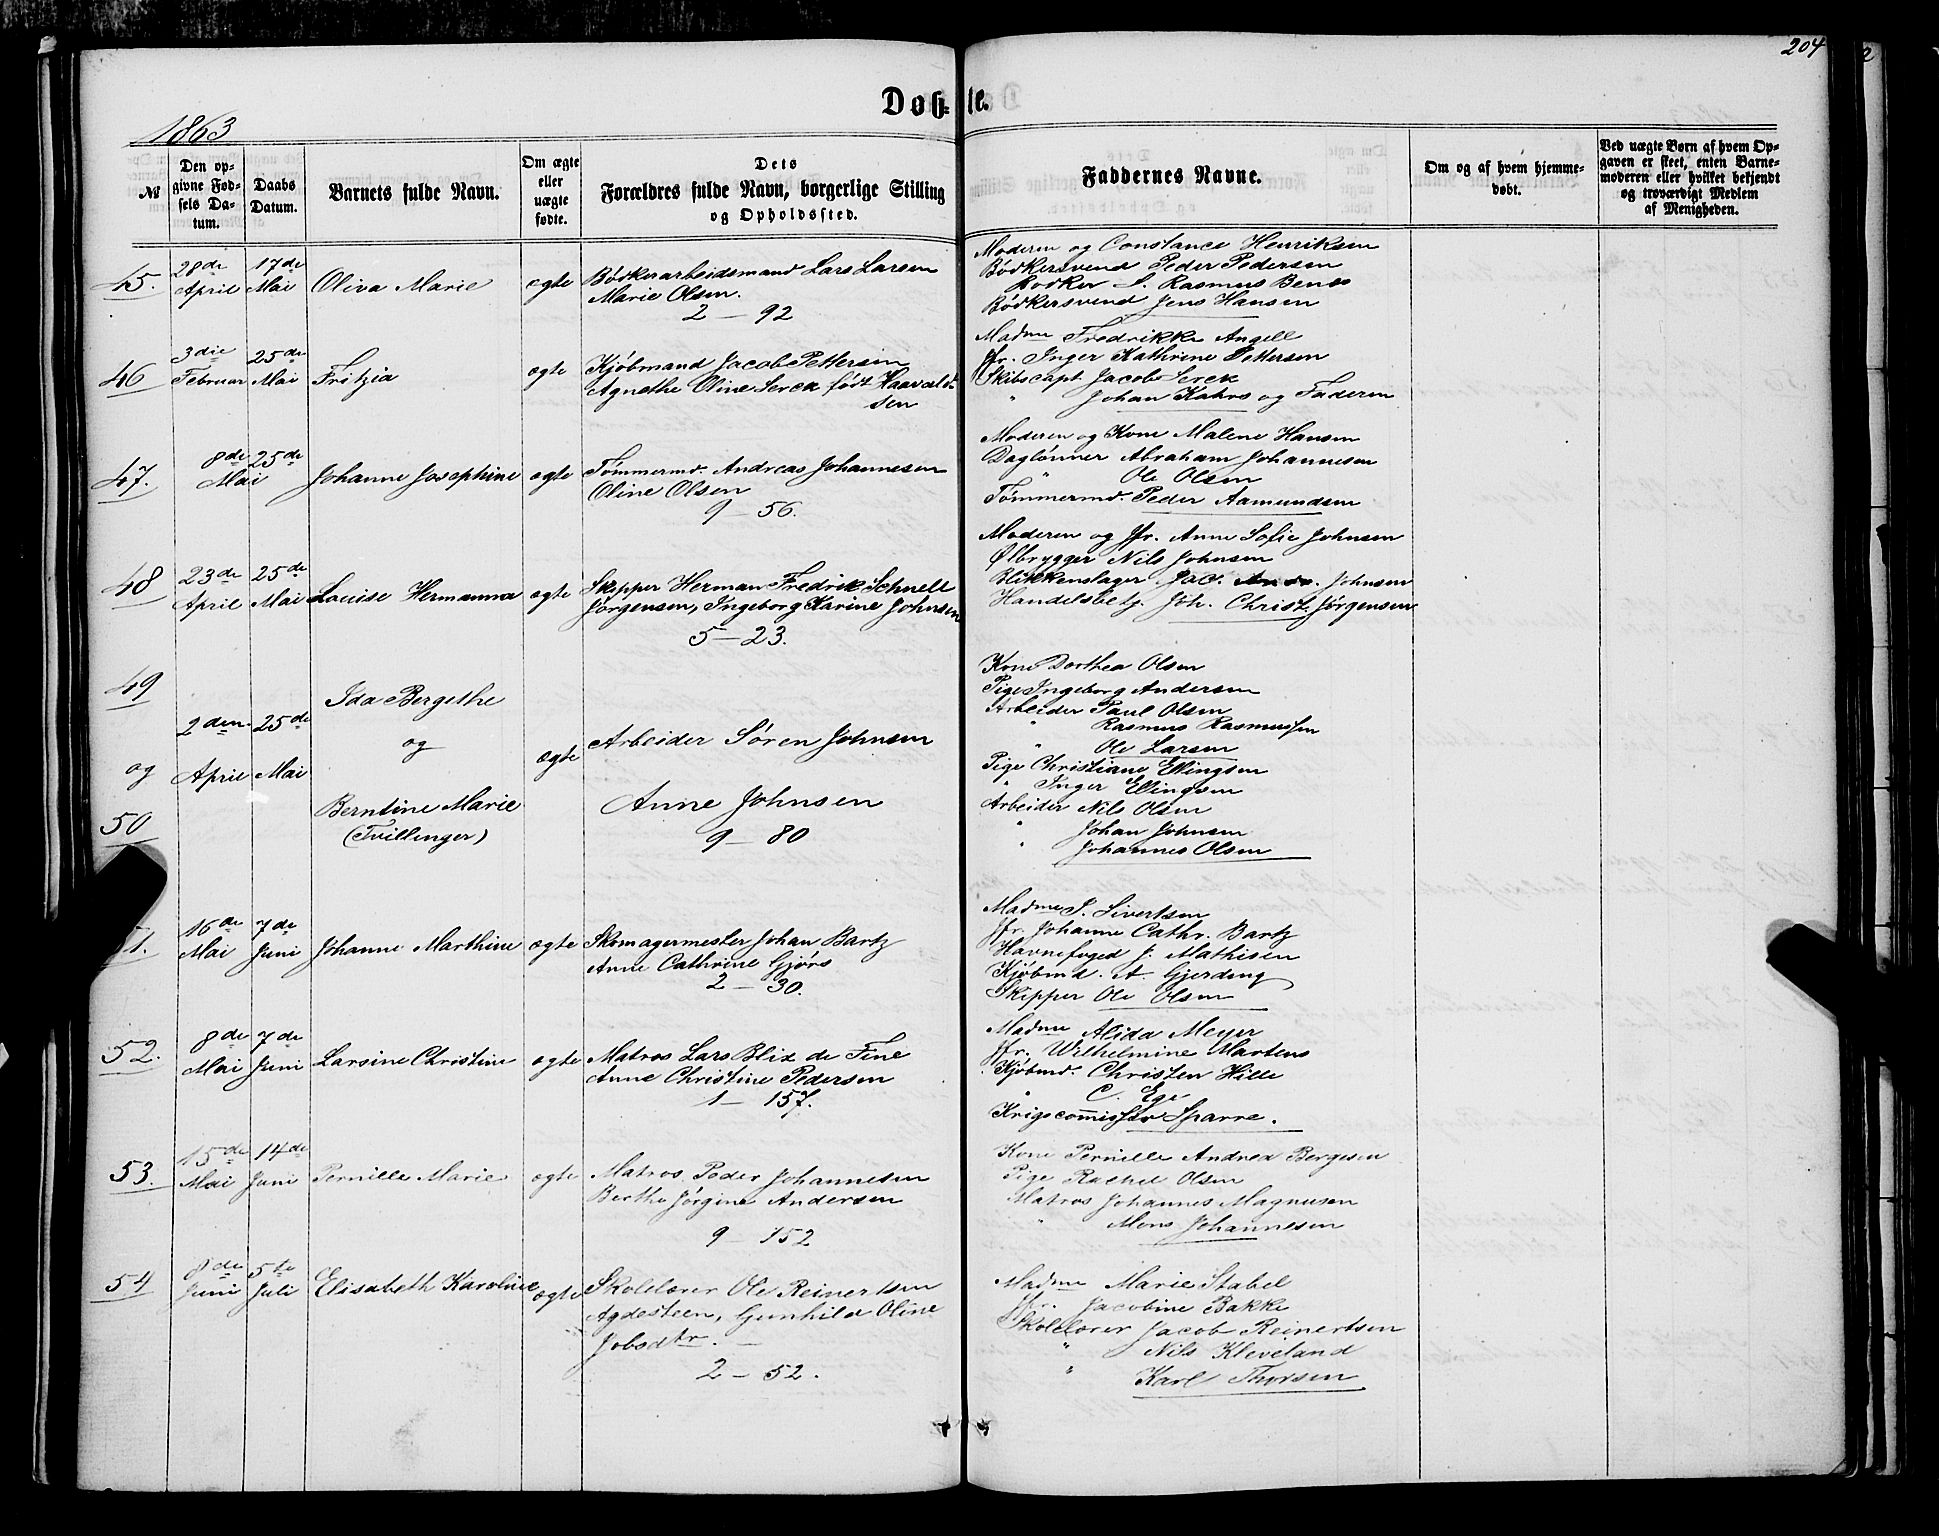 204
Døb-te.
1863
№
Den opgivne Fødsels Datum.
Daabs Datum.
Barnets fulde Navn.
Om ægte eller uægte fødte.
Dets Forældres fulde Navn, borgerlige Stilling og Opholdssted.
Faddernes Navne.
Om og af hvem hjemmedøbt.
Ved uægte Børn af hvem Opgaven er skeet, enten Barnemoderen eller hvilket bekjendt og troværdigt Medlem af Menigheden.
45.
28de April
17de Mai
Oliva Marie
ægte
Bødkerarbeidsmand Lars Larsen
Marie Olsen.
2 – 92
Moderen og Constance Henriksen
Bødkersvend Peder Pedersen
Bødker S. Rasmus Benes
Bødkersvend Jens Hansen
46
3die Februar
25de Mai
Fritzia
ægte
Kjøbmand Jacob Pettersen
Agnethe Oline Serck født Haavald-
sen
Madme Fredrikke Angell
Jfr. Inger Kathrine Pettersen
Skibscapt. Jacob Serck
" Johan Kahrs og Faderen
47.
8de Mai
25de
Johanne Josephine
ægte
Tømmermd. Andreas Johannesen
Oline Olsen
9 – 56.
Moderen og Kone Malene Hansen
Daglønner Abraham Johannesen
" Ole Olsen
Tømmermd. Peder Aamundsen
48
23de April
25de Mai
Louise Hermanna
ægte
Skipper Herman Fredrik Schnell
Jørgensen, Ingeborg Karine Johnsen
5 – 23.
Moderen og Jfr. Anne Sofie Johnsen
Ølbrygger Nils Johnsen
Blikkenslager Jac. Johnsen
Handelsbetj. Joh. Christ. Jørgensen
49
og
50
2den April
25de Mai
Ida Bergethe
og
Berntine Marie
(Tvillinger)
ægte
Arbeider Søren Johnsen
Anne Johnsen
9 – 80
Kone Dorthea Olsen
Pige Ingeborg Andersen
Arbeider Paul Olsen
" Rasmus Rasmussen
" Ole Larsen
Pige Christiane Ellingsen
" Inger Ellingsen
Arbeider Nils Olsen
" Johan Johnsen
" Johannes Olsen
1.
16de Mai
7de Juni
Johanne Marthine
ægte
Skomagermester Johan Bartz
Anne Cathrine Gjørs
2 – 30.
Madme S. Sivertsen
Jfr. Johanne Cathr. Bartz
Havnefoged J. Mathisen
Kjøbmd. A. Gjerding
Skipper Ole Olsen
52.
8de Mai
7de Juni
Larsine Christine
ægte
Matros Lars Blix de Fine
Anne Christine Pedersen
1 – 157.
Madme Alida Meyer
Jfr. Wilhelmine Martens
Kjøbmd. Christen Hille
" C. Ege
Krigscommissær Sparre.
53.
15de Mai
14de Juni
Pernille Marie
ægte
Matros Peder Johannesen
Berthe Jørgine Andersen
9 – 152
Kone Pernille Andrea Bergesen
Pige Rachel Olsen
Matros Johannes Magnusen
" Mons Johannesen
54
8de Juni
5te Juli
Elisabeth Karoline
ægte
Skolelærer Ole Reinertsen
Agdesteen, Gunhild Oline
Jobsdtr.
2 – 52.
Madme Marie Stabel
Jfr. Jacobine Bakke
Skolelærer Jacob Reinertsen
" Nils Kleveland
" Karl Thorsen